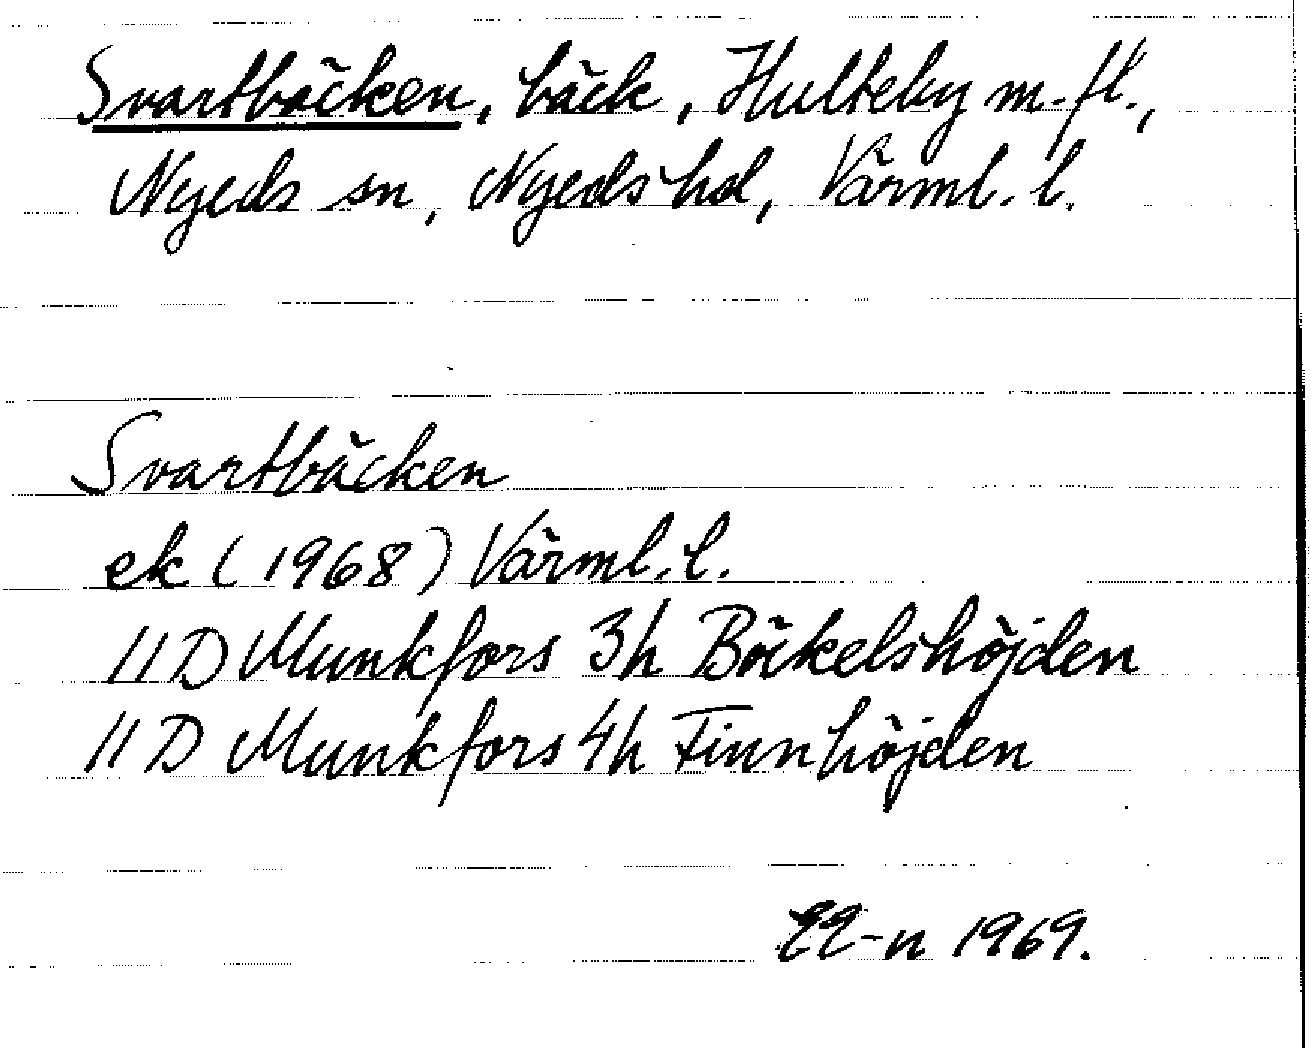 Svartbäcken, bäck, Hulteby m. fl.,
Nyeds sn, Nyeds hd, Värml. l.
Svartbäcken
ek (1968) Värml. l.
11 D Munkfors 3h Böckelshöjden
11 D Munkfors 4h Finnhöjden
1969.